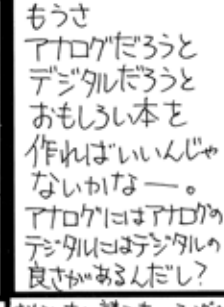 もうさ
アナログだろうと
デジタルだろうと
おもしろい本を
作ればいいんじゃ
ないかなー。
アナログにはアナログの
デジタルにはデジタルの
良さがあるんだし?